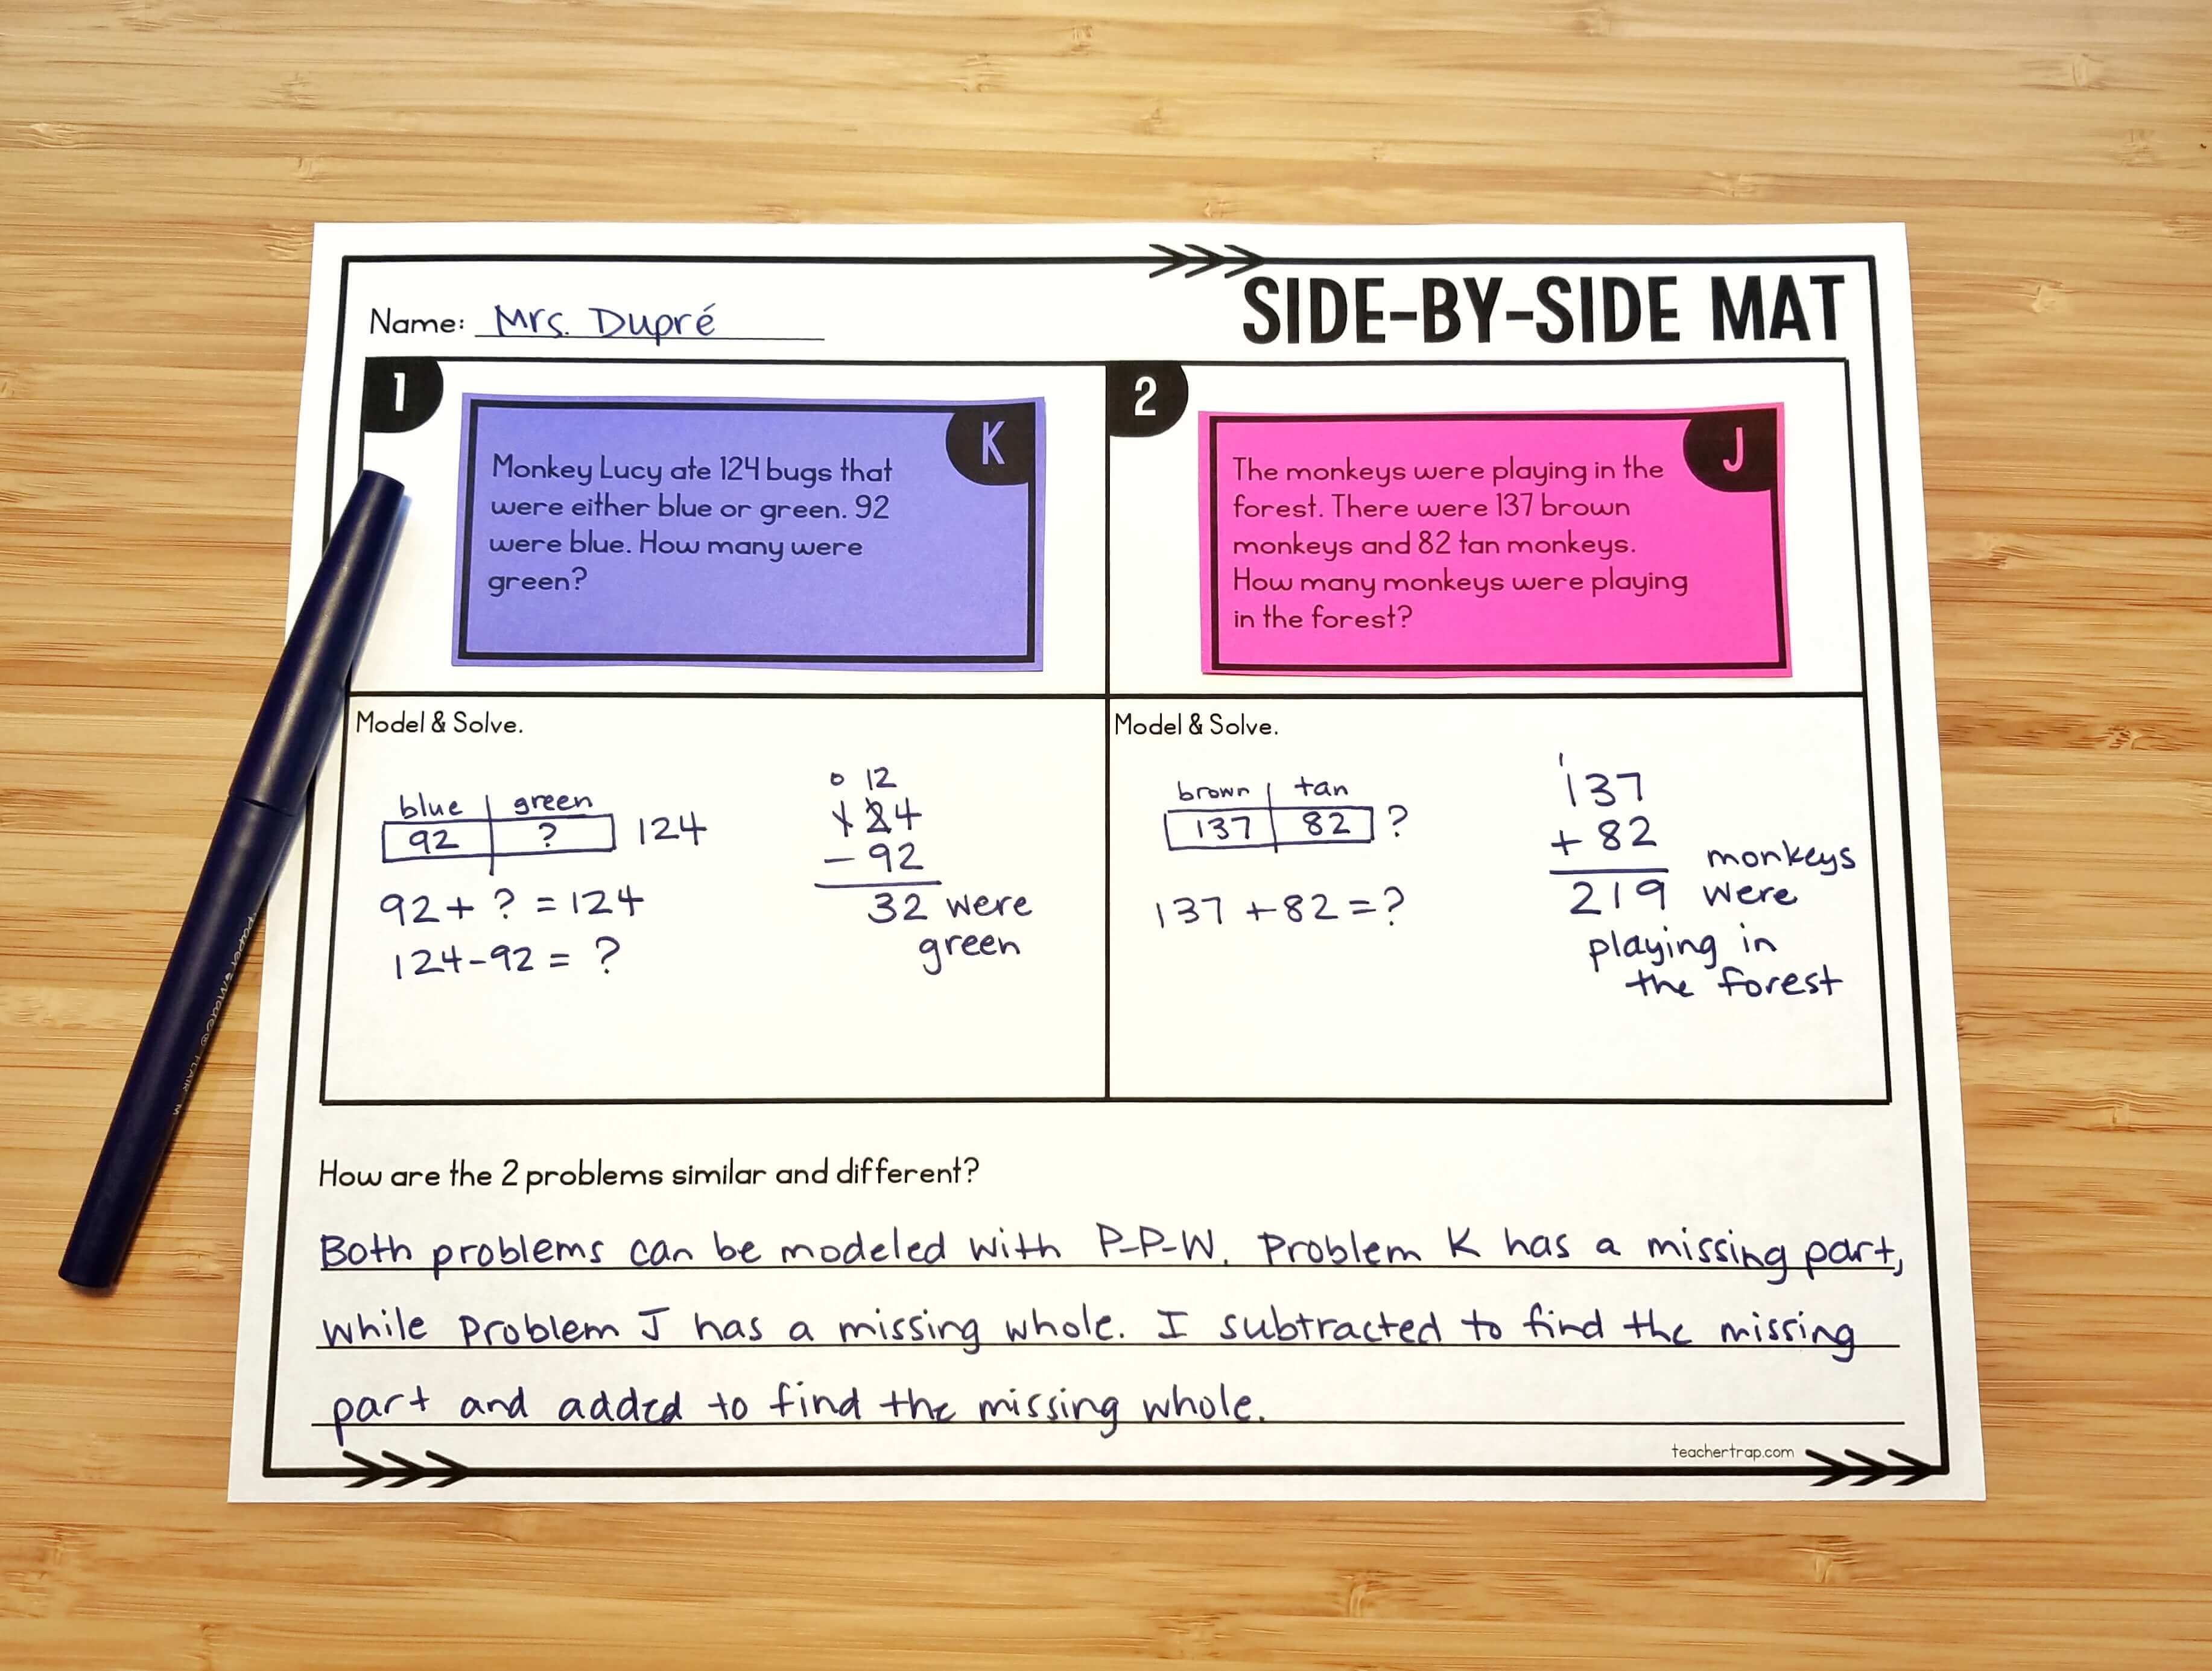 SIDE-BY-SIDE MAT
Name: Mrs. Dupré
1
K
Monkey Lucy ate 124 bugs that
were either blue or green. 92
were blue. How many were
green?
2
J
The monkeys were playing in the
forest. There were 137 brown
monkeys and 82 tan monkeys.
How many monkeys were playing
in the forest?
Model & Solve.
blue green
92 ? 124
92 + ? = 124
124-92 = ?
0 12
124
- 92
32 were
green
Model & Solve.
brown tan
137 82 ?
137 +82 = ?
1
137
+ 82
219 monkeys
were
playing in
the forest
How are the 2 problems similar and different?
Both problems can be modeled with P-P-W. Problem K has a missing part,
while problem J has a missing whole. I subtracted to find the missing
part and added to find the missing whole.
teachertrap.com
paper mate® FLAIR M